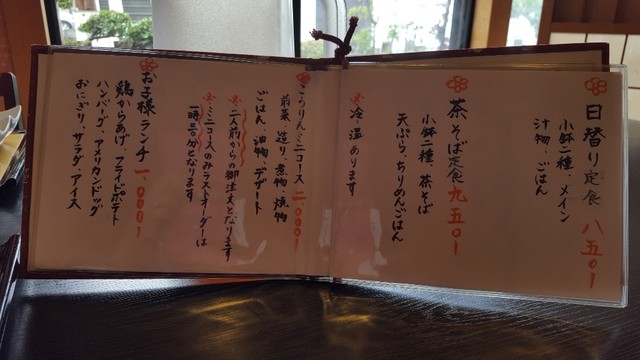 日替り定食 八五〇ー
小鉢二種・メイン
汁物、ごはん
茶そば定食 九五〇ー
小鉢二種 茶そば
天ぷら ちりめんごはん
冷・温あります
こうりんミニコース 二、〇〇〇ー
前菜 造り 煮物 焼物
ごはん 油物 デザート
二人前からの御注文となります
ミニコースのみラストオーダーは
一時三〇分となります
お子様ランチ 一、〇〇〇ー
鶏からあげ、フライドポテト
ハンバーグ、アメリカンドッグ
おにぎり、サラダ、アイス